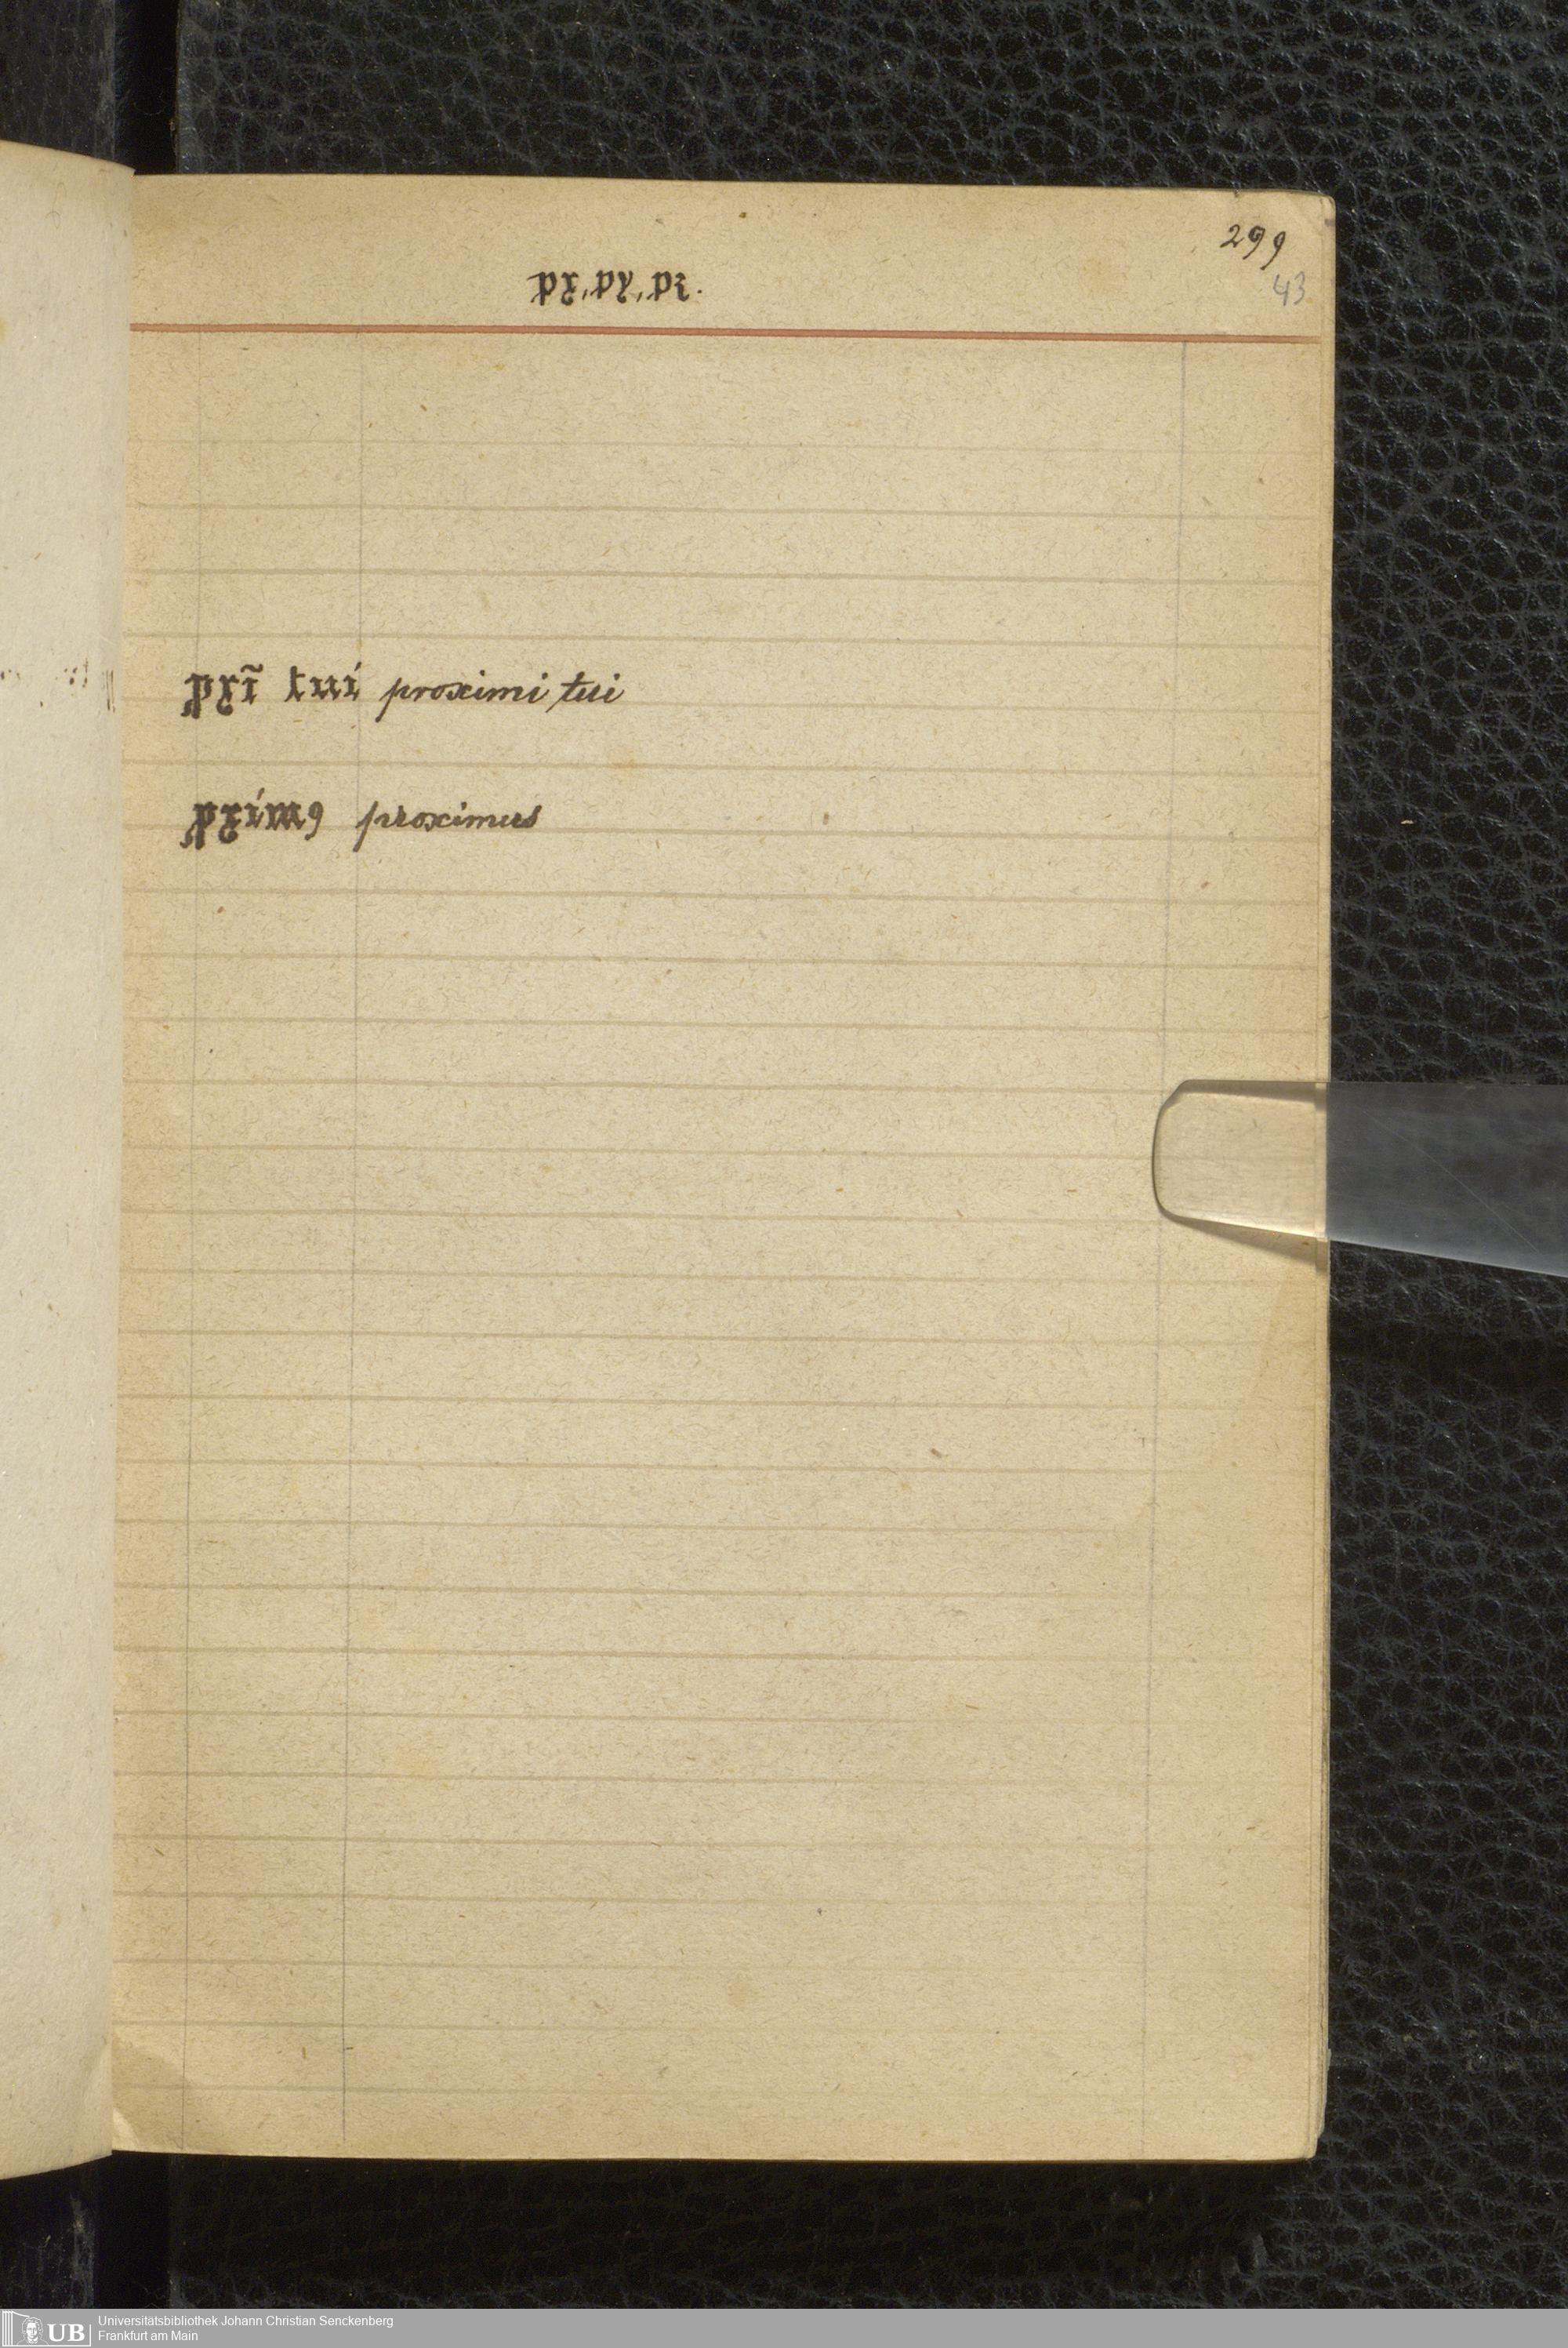 299
43
px, py, pz.
ꝓxĩ tuí proximi tui
ꝓxímꝯ proximus
UB
Universitätsbibliothek Johann Christian Senckenberg
Frankfurt am Main